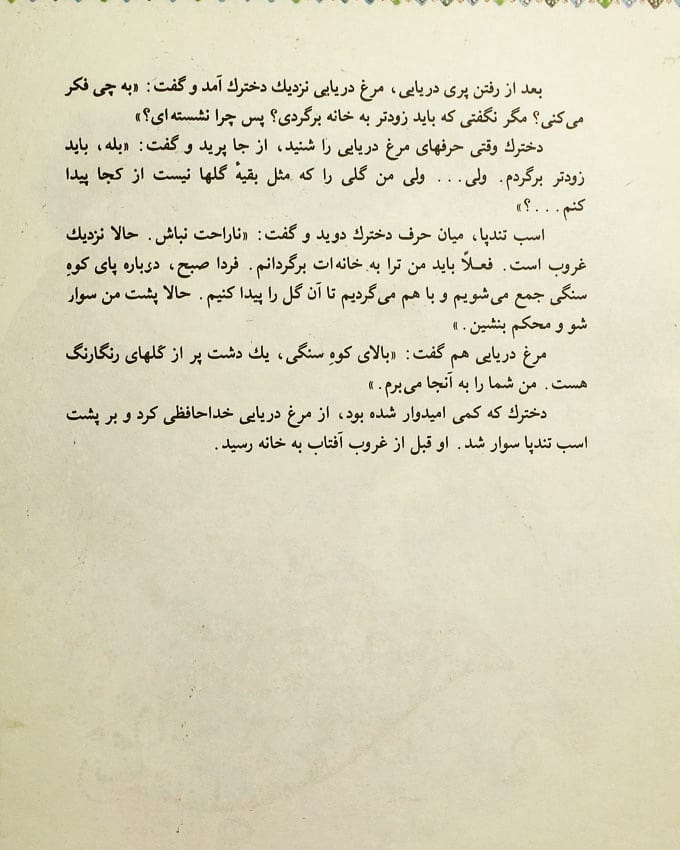 بعد از رفتن پری دریایی، مرغ دریایی نزدیك دخترك آمد و گفت: «به چی فکر
می‌کنی؟ مگر نگفتی که باید زودتر به خانه برگردی؟ پس چرا نشسته‌ای؟»
دخترك وقتی حرفهای مرغ دریایی را شنید، از جا پرید و گفت: «بله، باید
زودتر برگردم. ولی... ولی من گلی را که مثل بقیهٔ گلها نیست از کجا پیدا
کنم...؟»
اسب تندپا، میان حرف دخترك دوید و گفت: «ناراحت نباش. حالا نزدیك
غروب است. فعـلاً باید من ترا به خانه‌ات برگردانم. فردا صبح، دوباره پای کوهِ
سنگی جمع می‌شویم و با هم می‌گردیم تا آن گل را پیدا کنیم. حالا پشت من سوار
شو و محکم بنشین.»
مرغ دریایی هم گفت: «بالای کوهِ سنگی، یك دشت پر از گلهای رنگارنگ
هست. من شما را به آنجا می‌برم.»
دخترك که کمی امیدوار شده بود، از مرغ دریایی خداحافظی کرد و بر پشت
اسب تندپا سوار شد. او قبل از غروب آفتاب به خانه رسید.